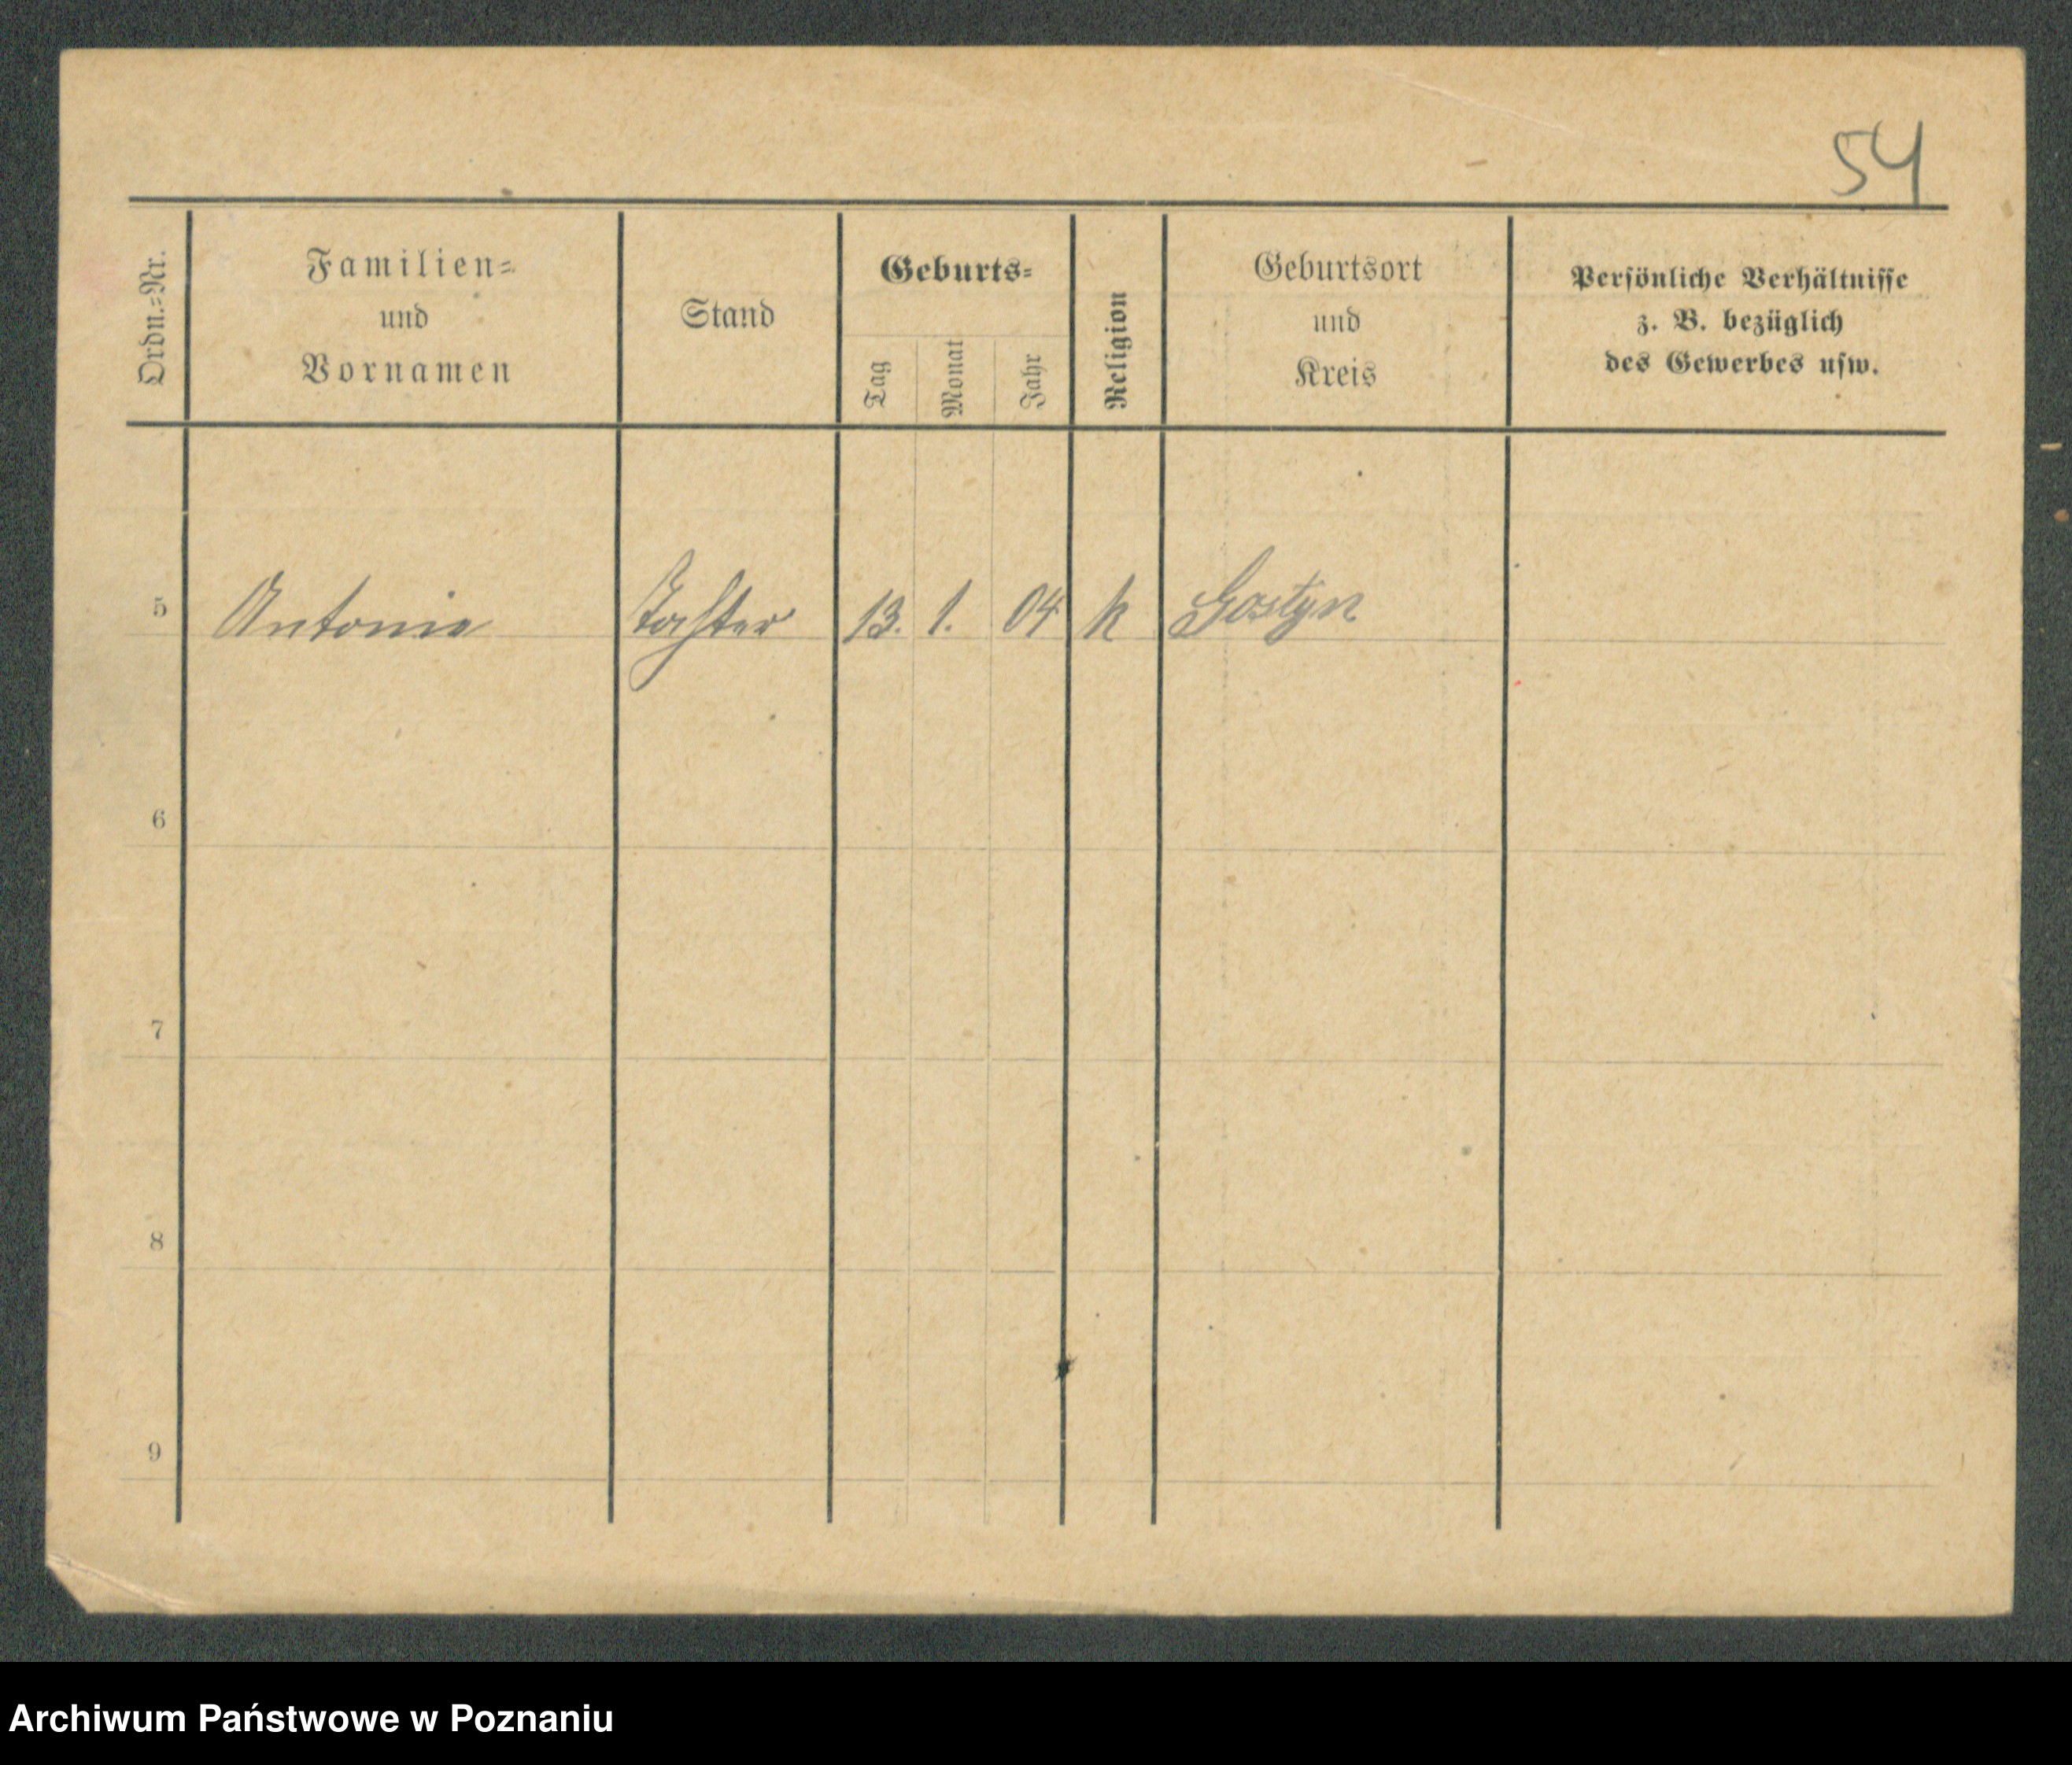 54
Ordn.=Nr.
Familien=
und
Vornamen
Stand
Geburts=
Tag
Monat
Jahr
Religion
Geburtsort
und
Kreis
Persönliche Verhältnisse
z. B. bezüglich
des Gewerbes usw.
5 Antonie Tochter 13. 1. 04 k Gostyn
6
7
8
9
Archiwum Państwowe w Poznaniu